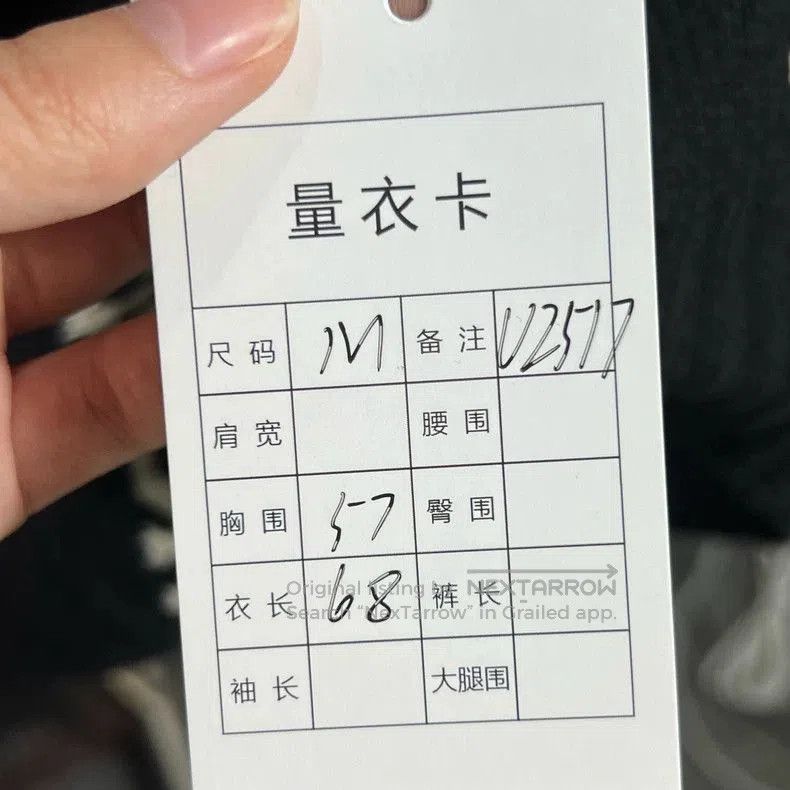 量衣卡
尺码 M 备注 U2517
肩宽 腰围
胸围 57 臀围
衣长 68 裤长
袖长 大腿围
Original listing by NEXTARROW
Search “NexTarrow” in Grailed app.